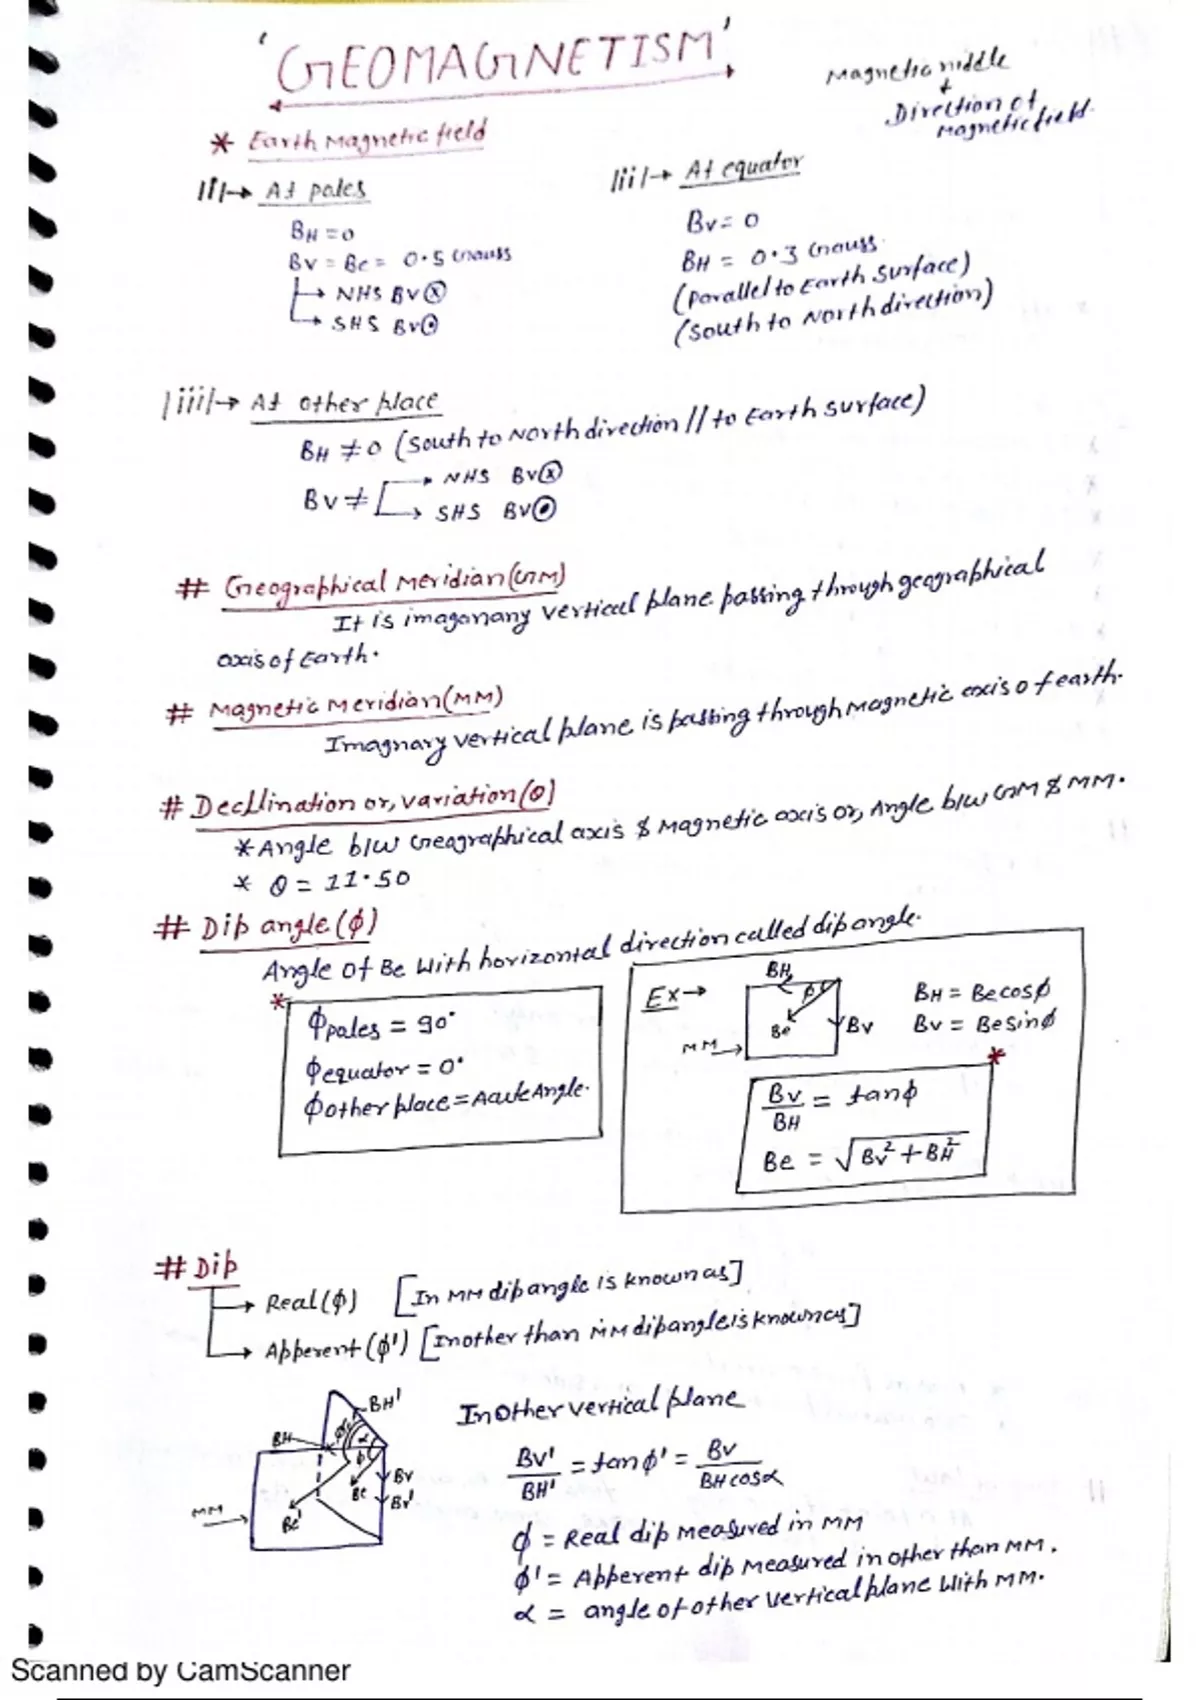 'GEOMAGNETISM'
Magnetic niddle
↓
Direction of
magnetic field.
* Earth Magnetic field
|i|→ At poles
BH = 0
Bv = Be = 0.5 Gauss
→ NHS Bv⊗
→ SHS Bv⊙
|ii|→ At equator
Bv = 0
BH = 0.3 Gauss
(parallel to Earth surface)
(South to North direction)
|iii|→ At other place
BH ≠ 0 (South to North direction // to Earth surface)
Bv ≠
→ NHS Bv⊗
→ SHS Bv⊙
# Geographical Meridian (GM)
It is imaganary vertical plane passing through geographical
axis of Earth.
# Magnetic Meridian (MM)
Imagnary vertical plane is passing through Magnetic axis of earth.
# Decllination or, variation (θ)
* Angle b/w Geagraphical axis & Magnetic axis or, Angle b/w GM & MM.
* θ = 11.50
# Dip angle (ϕ)
Angle of Be with horizontal direction called dip angle.
*
ϕpoles = 90°
ϕequator = 0°
ϕother place = Acute Angle.
Ex→
BH
ϕ
Be
Bv
MM→
BH = Be cosϕ
Bv = Be sinϕ
*
Bv/BH = tanϕ
Be = √Bv² + BH²
# Dip
→ Real (ϕ) [In MM dip angle is known as]
→ Apperent (ϕ') [In other than MM dip angle is known as]
BH'
BH
ϕ'
α
ϕ
Bv
Be
Bv'
Be'
MM→
In Other vertical plane
Bv'/BH' = tanϕ' = Bv/BH cosα
ϕ = Real dip measured in MM
ϕ' = Apperent dip measured in other than MM.
α = angle of other vertical plane with MM.
Scanned by CamScanner